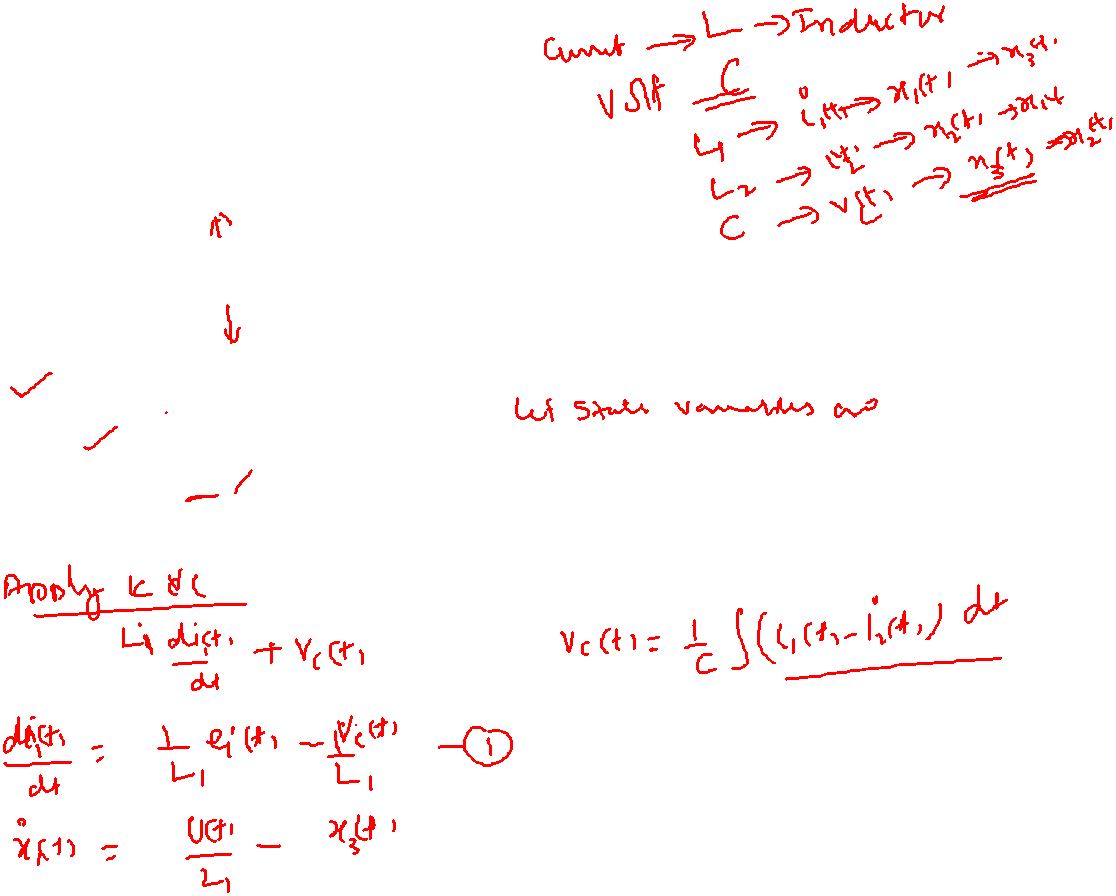 Current → L → Inductor
Volt C
L1 → i1(t) → x1(t) → x3(t)
L2 → i2 → x2(t) → x1(t)
C → vc(t) → x3(t) → x2(t)
Let state variables are
Apply KVL
L1 di1(t)/dt + Vc(t)
vc(t) = 1/C ∫(i1(t) - i2(t)) dt
di1(t)/dt = 1/L1 ei(t) - 1/L1 Vc(t) - ①
ẋ1(t) = U(t)/L1 - x3(t)